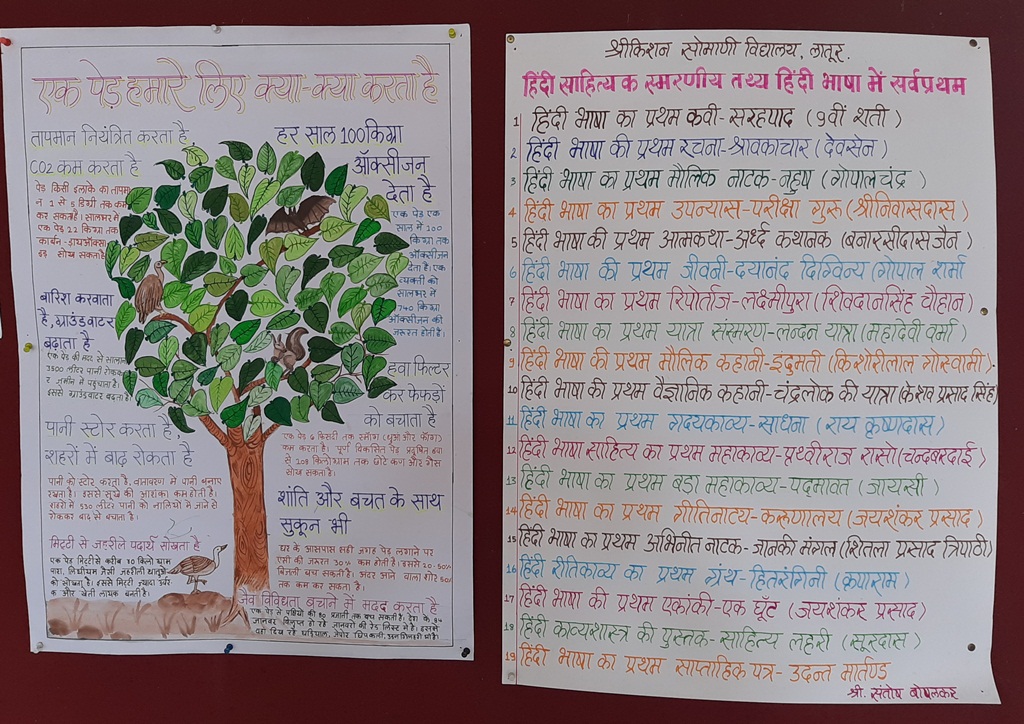 एक पेड़ हमारे लिए क्या-क्या करता है
तापमान नियंत्रित करता है,
CO2 कम करता है
पेड़ किसी इलाके का तापमा
न 1 से 5 डिग्री तक कम
कर सकता है। सालभर में
एक पेड़ 22 किग्रा तक
कार्बन-डायऑक्सा
इड सोख सकता है।
बारिश करवाता
है, ग्राउंडवाटर
बढ़ाता है
एक पेड़ की मदद से सालाना
3500 लीटर पानी रोककर
ज़मीन में पहुंचाता है।
इससे ग्राउंडवाटर बढ़ता है
पानी स्टोर करता है,
शहरों में बाढ़ रोकता है
पानी को स्टोर करता है, वातावरण में पानी बनाए
रखता है। इससे सूखे की आशंका कम होती है।
शहरों में 530 लीटर पानी को नालियों में जाने से
रोककर बाढ़ से बचाता है।
मिट्टी से जहरीले पदार्थ सोखता है
एक पेड़ मिट्टीसे करीब 80 किलो ग्राम
पारा, लिथीयम जैसी जहरीली धातुओं
को सोखता है। इससे मिट्टी ज्यादा उर्वर
क और खेती लायक बनती है।
हर साल 100 किग्रा
ऑक्सीजन
देता है
एक पेड़ एक
साल में 100
किग्रा तक
ऑक्सीजन
देता है। एक
व्यक्ती को
सालभर में
740 किग्रा
ऑक्सीजन की
जरूरत होती है।
हवा फिल्टर
कर फेफड़ों
को बचाता है
एक पेड़ 6 फिसदी तक स्मॉग (धुआं और फॉग)
कम करता है। पूर्ण विकसित पेड़ प्रदूषित हवा
से 108 किलोग्राम तक छोटे कण और गैस
सोख सकता है।
शांति और बचत के साथ
सुकून भी
घर के आसपास सही जगह पेड़ लगाने पर
एसी की जरूरत 30% कम होती है। इससे 20-50%
बिजली बच सकती है। अंदर आने वाला शोर 50%
तक कम कर सकता है।
जैव विविधता बचाने में मदद करता है
एक पेड़ से पक्षियों की 80 प्रजाती तक बच सकती है। देश के
जानवर विलुप्त हो रहे जानवरों की रेड लिस्ट में है। इनमें
श्रीकिशन सोमाणी विद्यालय, लातूर.
हिंदी साहित्य क स्मरणीय तथ्य हिंदी भाषा में सर्वप्रथम
1 हिंदी भाषा का प्रथम कवी- सरहपाद (9वीं शती)
2 हिंदी भाषा की प्रथम रचना-श्रावकाचार (देवसेन)
3 हिंदी भाषा का प्रथम मौलिक नाटक-नहुष (गोपालचंद्र)
4 हिंदी भाषा का प्रथम उपन्यास-परीक्षा गुरू (श्रीनिवासदास)
5 हिंदी भाषा की प्रथम आत्मकथा-अर्ध्द कथानक (बनारसीदास जैन)
6 हिंदी भाषा की प्रथम जीवनी-दयानंद दिग्विन्य (गोपाल शर्मा
7 हिंदी भाषा का प्रथम रिपोर्ताज-लक्ष्मीपुरा (शिवदानसिंह चौहान)
8 हिंदी भाषा का प्रथम यात्रा संस्मरण-लन्दन यात्रा (महादेवी वर्मा)
9 हिंदी भाषा की प्रथम मौलिक कहानी-इंदुमती (किशोरीलाल गोस्वामी)
10 हिंदी भाषा की प्रथम वैज्ञानिक कहानी-चंद्रलोक की यात्रा (केशव प्रसाद सिंह)
11 हिंदी भाषा का प्रथम गदयकाव्य-साधना (राय कृष्णदास)
12 हिंदी भाषा साहित्य का प्रथम महाकाव्य-पृथ्वीराज रासो (चन्दबरदाई)
13 हिंदी भाषा का प्रथम बडा महाकाव्य-पदमावत (जायसी)
14 हिंदी भाषा का प्रथम गीतिनाट्य-करूणालय (जयशंकर प्रसाद)
15 हिंदी भाषा का प्रथम अभिनीत नाटक-जानकी मंगल (शितला प्रसाद त्रिपाठी)
16 हिंदी रीतिकाव्य का प्रथम ग्रंथ-हितरंगिनी (कृपाराम)
17 हिंदी भाषा का प्रथम एकांकी-एक घूँट (जयशंकर प्रसाद)
18 हिंदी काव्यशास्त्र की पुस्तक-साहित्य लहरी (सूरदास)
19 हिंदी भाषा का प्रथम साप्ताहिक पत्र- उदन्त मार्तण्ड
श्री. संतोष बोपलकर